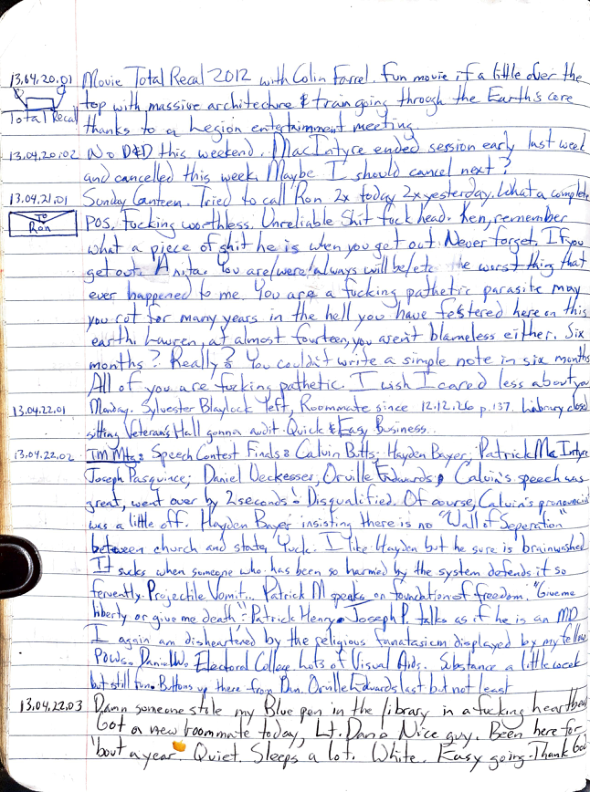 13.04.20.01 Movie Total Recal 2012 with Colin Farrel. Fun movie if a little over the
top with massive architecture & train going through the Earth's core
Total Recal
thanks to a Legion entertainment meeting
13.04.20.02 No D&D this weekend. MacIntyre ended session early last week
and cancelled this week. Maybe I should cancel next?
13.04.21.01 Sunday Canteen. Tried to call Ron 2x today 2x yesterday. What a complete
To Ron
POS. Fucking worthless. Unreliable Shit fuck head. Ken, remember
what a piece of shit he is when you get out. Never forget. If you
get out. Anita. You are/were/always will be/etc the worst thing that
ever happened to me. You are a fucking pathetic parasite may
you rot for many years in the hell you have festered here on this
earth. Lauren, at almost fourteen, you aren't blameless either. Six
months? Really? You couldn't write a simple note in six months
All of you are fucking pathetic. I wish I cared less about you
13.04.22.01 Monday. Sylvester Blaylock left, Roommate since 12.12.26 p.137. Library closed
sitting Veterans Hall gonna audit Quick & Easy Business.
13.04.22.02 TM Mtg: Speech Contest Finds: Calvin Butts, Hayden Bayer, Patrick McIntyre
Joseph Pasquince, Daniel Ueckesser, Orville Edwards, Calvin's speech was
great, went over by 2 seconds - Disqualified. Of course, Calvin's
was a little off. Hayden Bayer insisting there is no "Wall of Seperation"
between church and state, Yuck. I like Hayden but he sure is brainwashed
It sucks when someone who has been so harmed by the system defends it so
fervently. Projectile Vomit... Patrick M speaks on foundation of freedom. "Give me
liberty or give me death" - Patrick Henry. Joseph P. talks as if he is an MD
I again am disheartened by the religious fanatasicm displayed by my fellow
POWs. Daniel W. Electoral College Lots of Visual Aids. Substance a little
but still fun. Buttons up there from Dan. Orville Edwards last but not least
13.04.22.03 Damn someone stole my Blue pen in the library in a fucking heartbeat
Got a new roommate today, Lt. Dan. Nice guy. Been here for
'bout a year. Quiet. Sleeps a lot. White. Easy going. Thank God